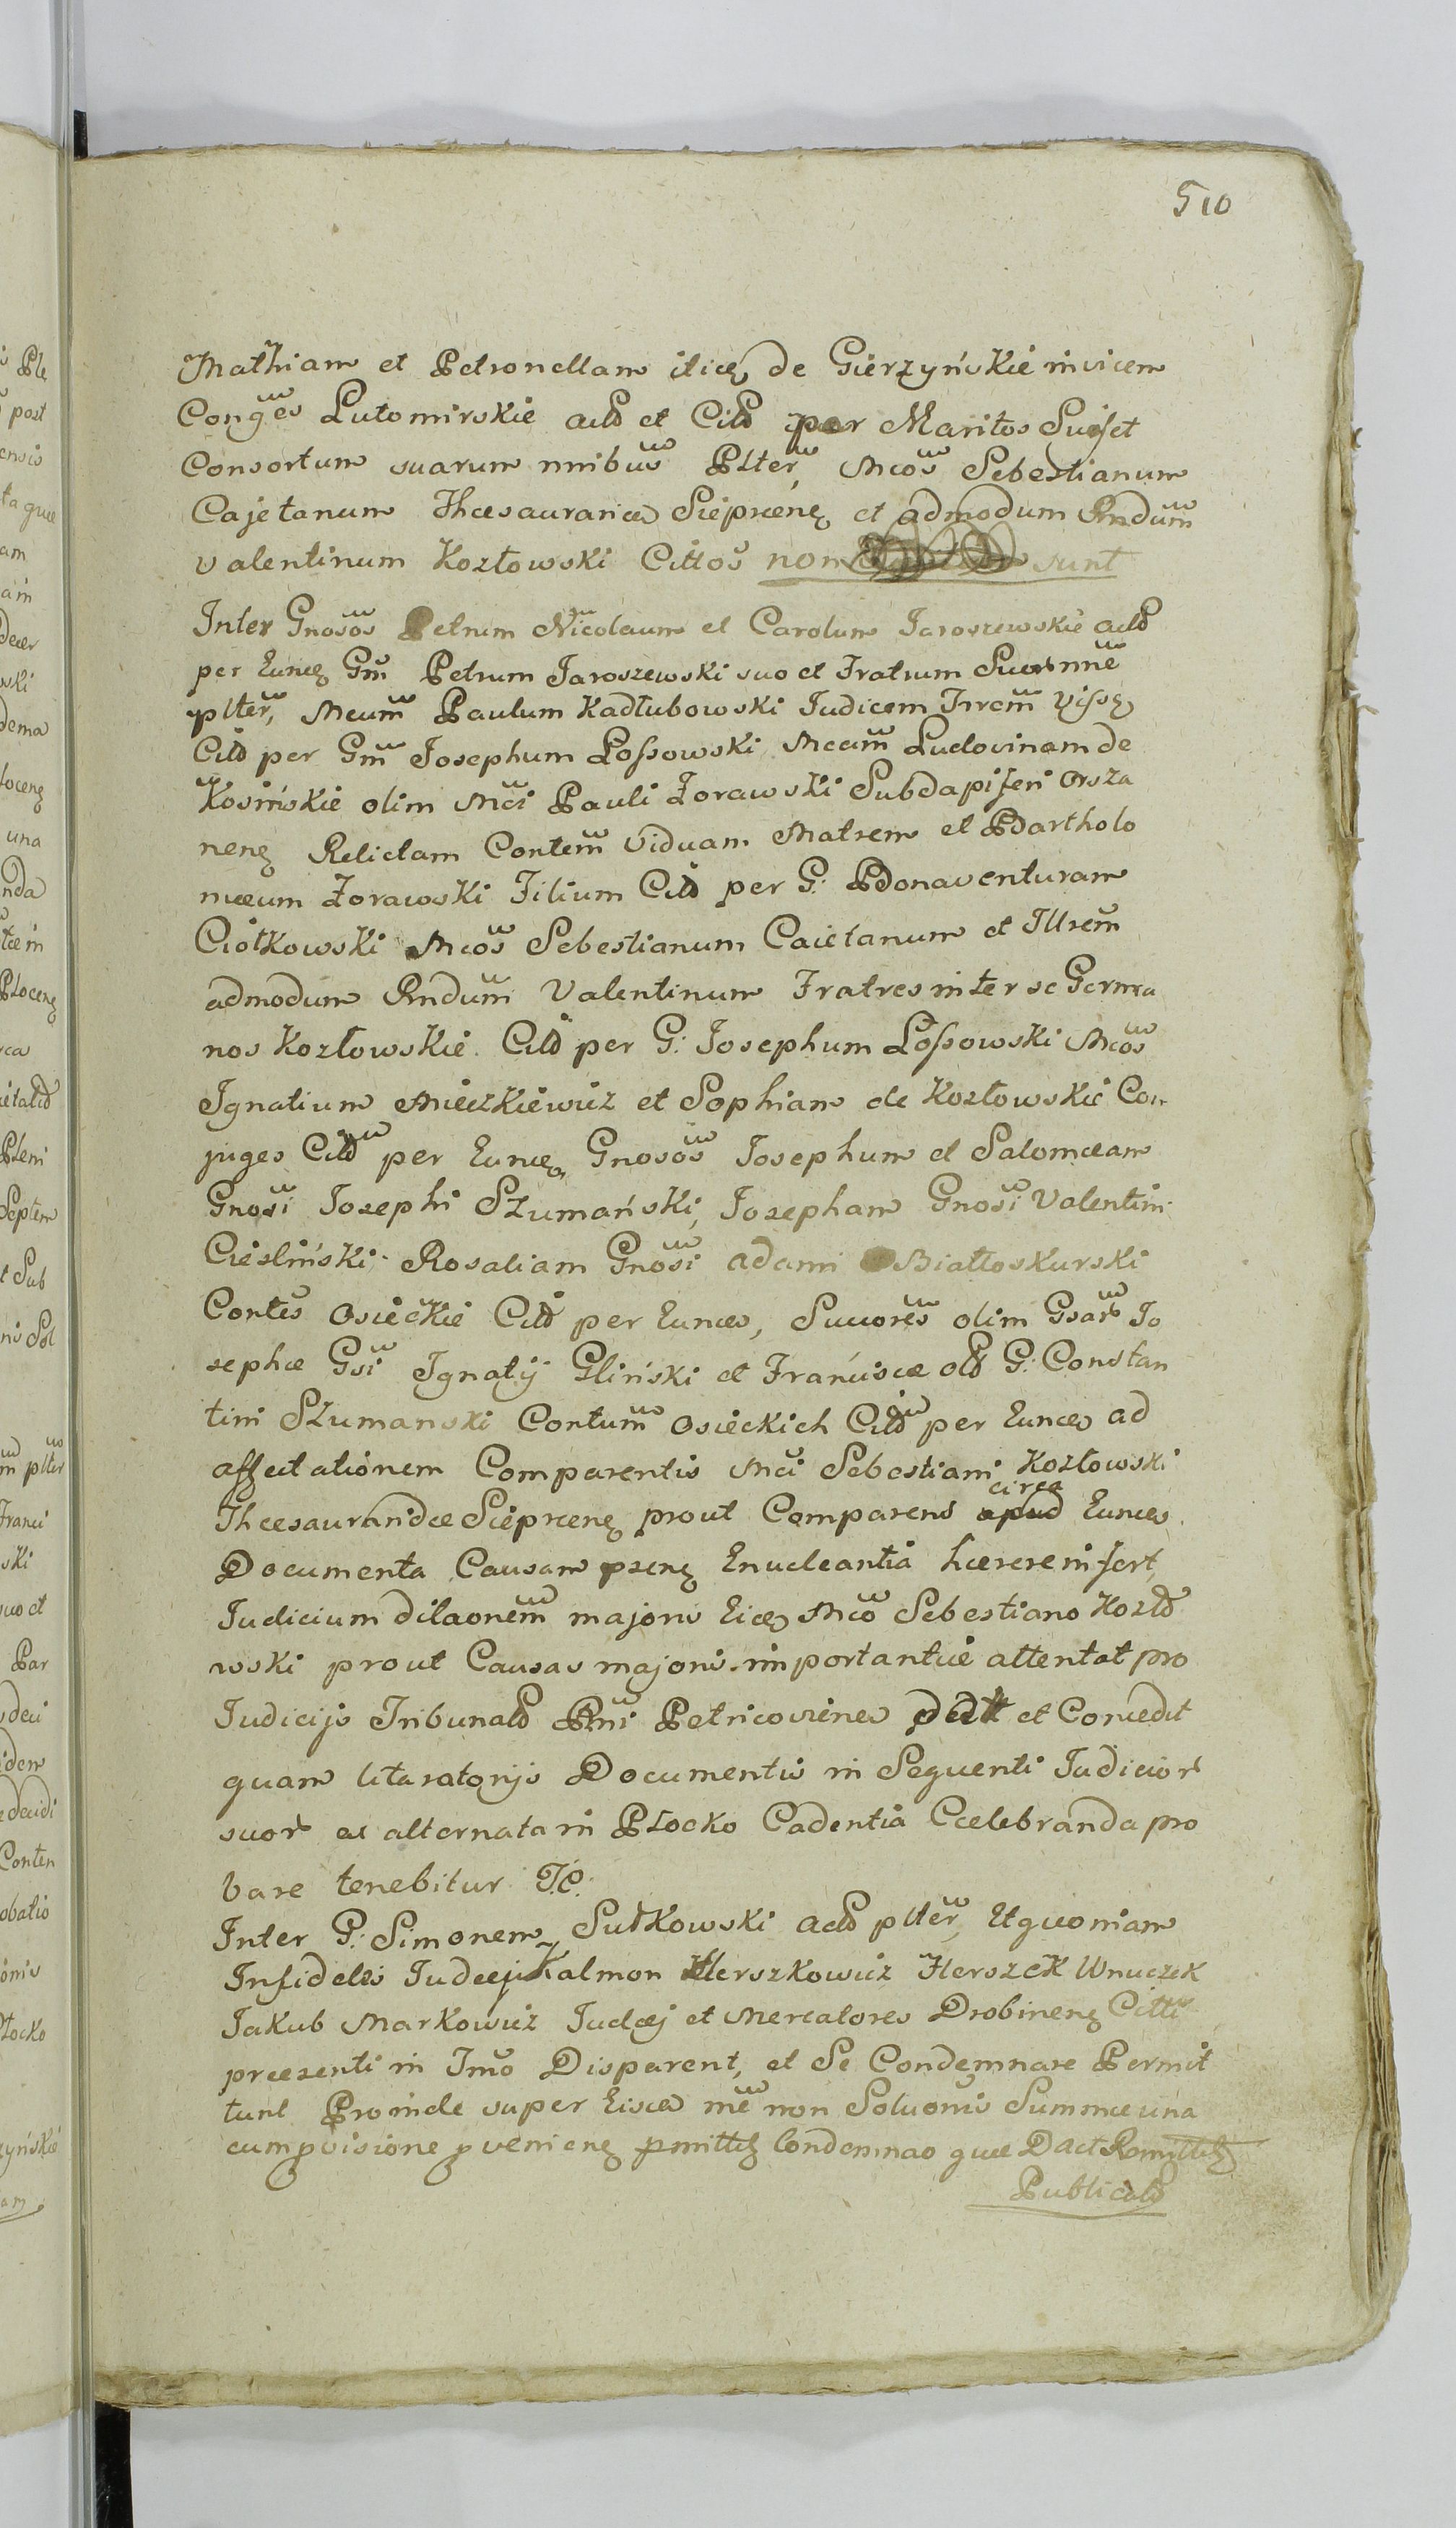 510
Mathiam et Petronellam itidẽ de Gierzyńskie invicem
Conges Lutomirskie actõ et Citõ per Maritos Suis et
Consortum suarum nnibus Plter, Mcos Sebestianum
Cajetanum Thesaurarice Sieprcenẽ et admodum Rndum
Valentinum Kozłowski Cittos non sunt
Inter Gnosos Petrum Nicolaum et Carolum Jaroszewskie actõ
per Eundẽ Gm Petrum Jaroszewski suo et Fratrum Suor nne
plter, Mcum Paulum Kadłubowski Judicem Trrem Vissẽ
Citõ per Gm Josephum Lossowski Mcam Ludovinam de
Kosińskie olim Mci Pauli Zorawski Subdapiferi Orsza
nenẽ Relictam Contem Viduam Matrem et Bartholo
mæum Zorawski Filium Citõ per G: Bonaventuram
Ciołkowski Mcos Sebestianum Caietanum et Illrem
admodum Rndum Valentinum Fratres inter se Germa
nos Kozłowskie. Citõ per G: Josephum Lossowski Mcos
Ignatium Mieczkiewicz et Sophiam de Kozłowskie Con
juges Citõ per Eundẽ Gnosos Josephum et Salomeam
Gnosi Josephi Szumański, Josepham Gnosi Valentini
Cieśliński. Rosaliam Gnosi Adami Białłoskurski
Contes Osieckie Citõ per Eundẽ, Sucores olim Gsar Jo
sephæ Gsi Ignatij Gliński et Francisca olõ G: Constan
tini Szumanski Contum Osieckich Citõ per Eundẽ ad
affectationem Comparentis Mci Sebestiani Kozłowski
Thesauraridæ Sieprcenẽ prout Comparens circa apud Eundẽ
Documenta Causam prenẽ Enucleantia hærere infert,
Judicium dilaonem majoris Eidẽ Mco Sebestiano Kozło
wski prout Causas majoris importantiæ attentat pro
Judicijs Tribunalõ Rni Petricoviens dat et Concedit
quam literatorijs Documentis in Sequenti Judicior
suor ex alternata in Płocko Cadentia Celebranda pro
bare tenebitur J.P.
Inter G: Simonem Sutkowski actõ plter, Et quoniam
Infideles Judæj Kalmon Herszkowicz Herszek Wnuczek
Jakub Markowicz Judæj et Mercatores Drobinenẽ Citti
præsenti in Tmo Disparent, et Se Condemnare Permit
tunt Proinde super Eisdẽ me non Soluonis Summæ una
cum pvisione pvenienẽ pmittẽ Condemnao quæ Dact Remittẽ
Publicatõ